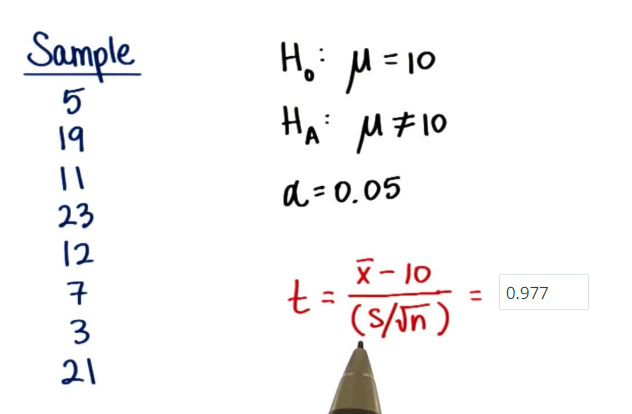 Sample
5
19
11
23
12
7
3
21
H₀: μ = 10
H_A: μ ≠ 10
α = 0.05
t = x̄ - 10 / (S/√n) = 0.977